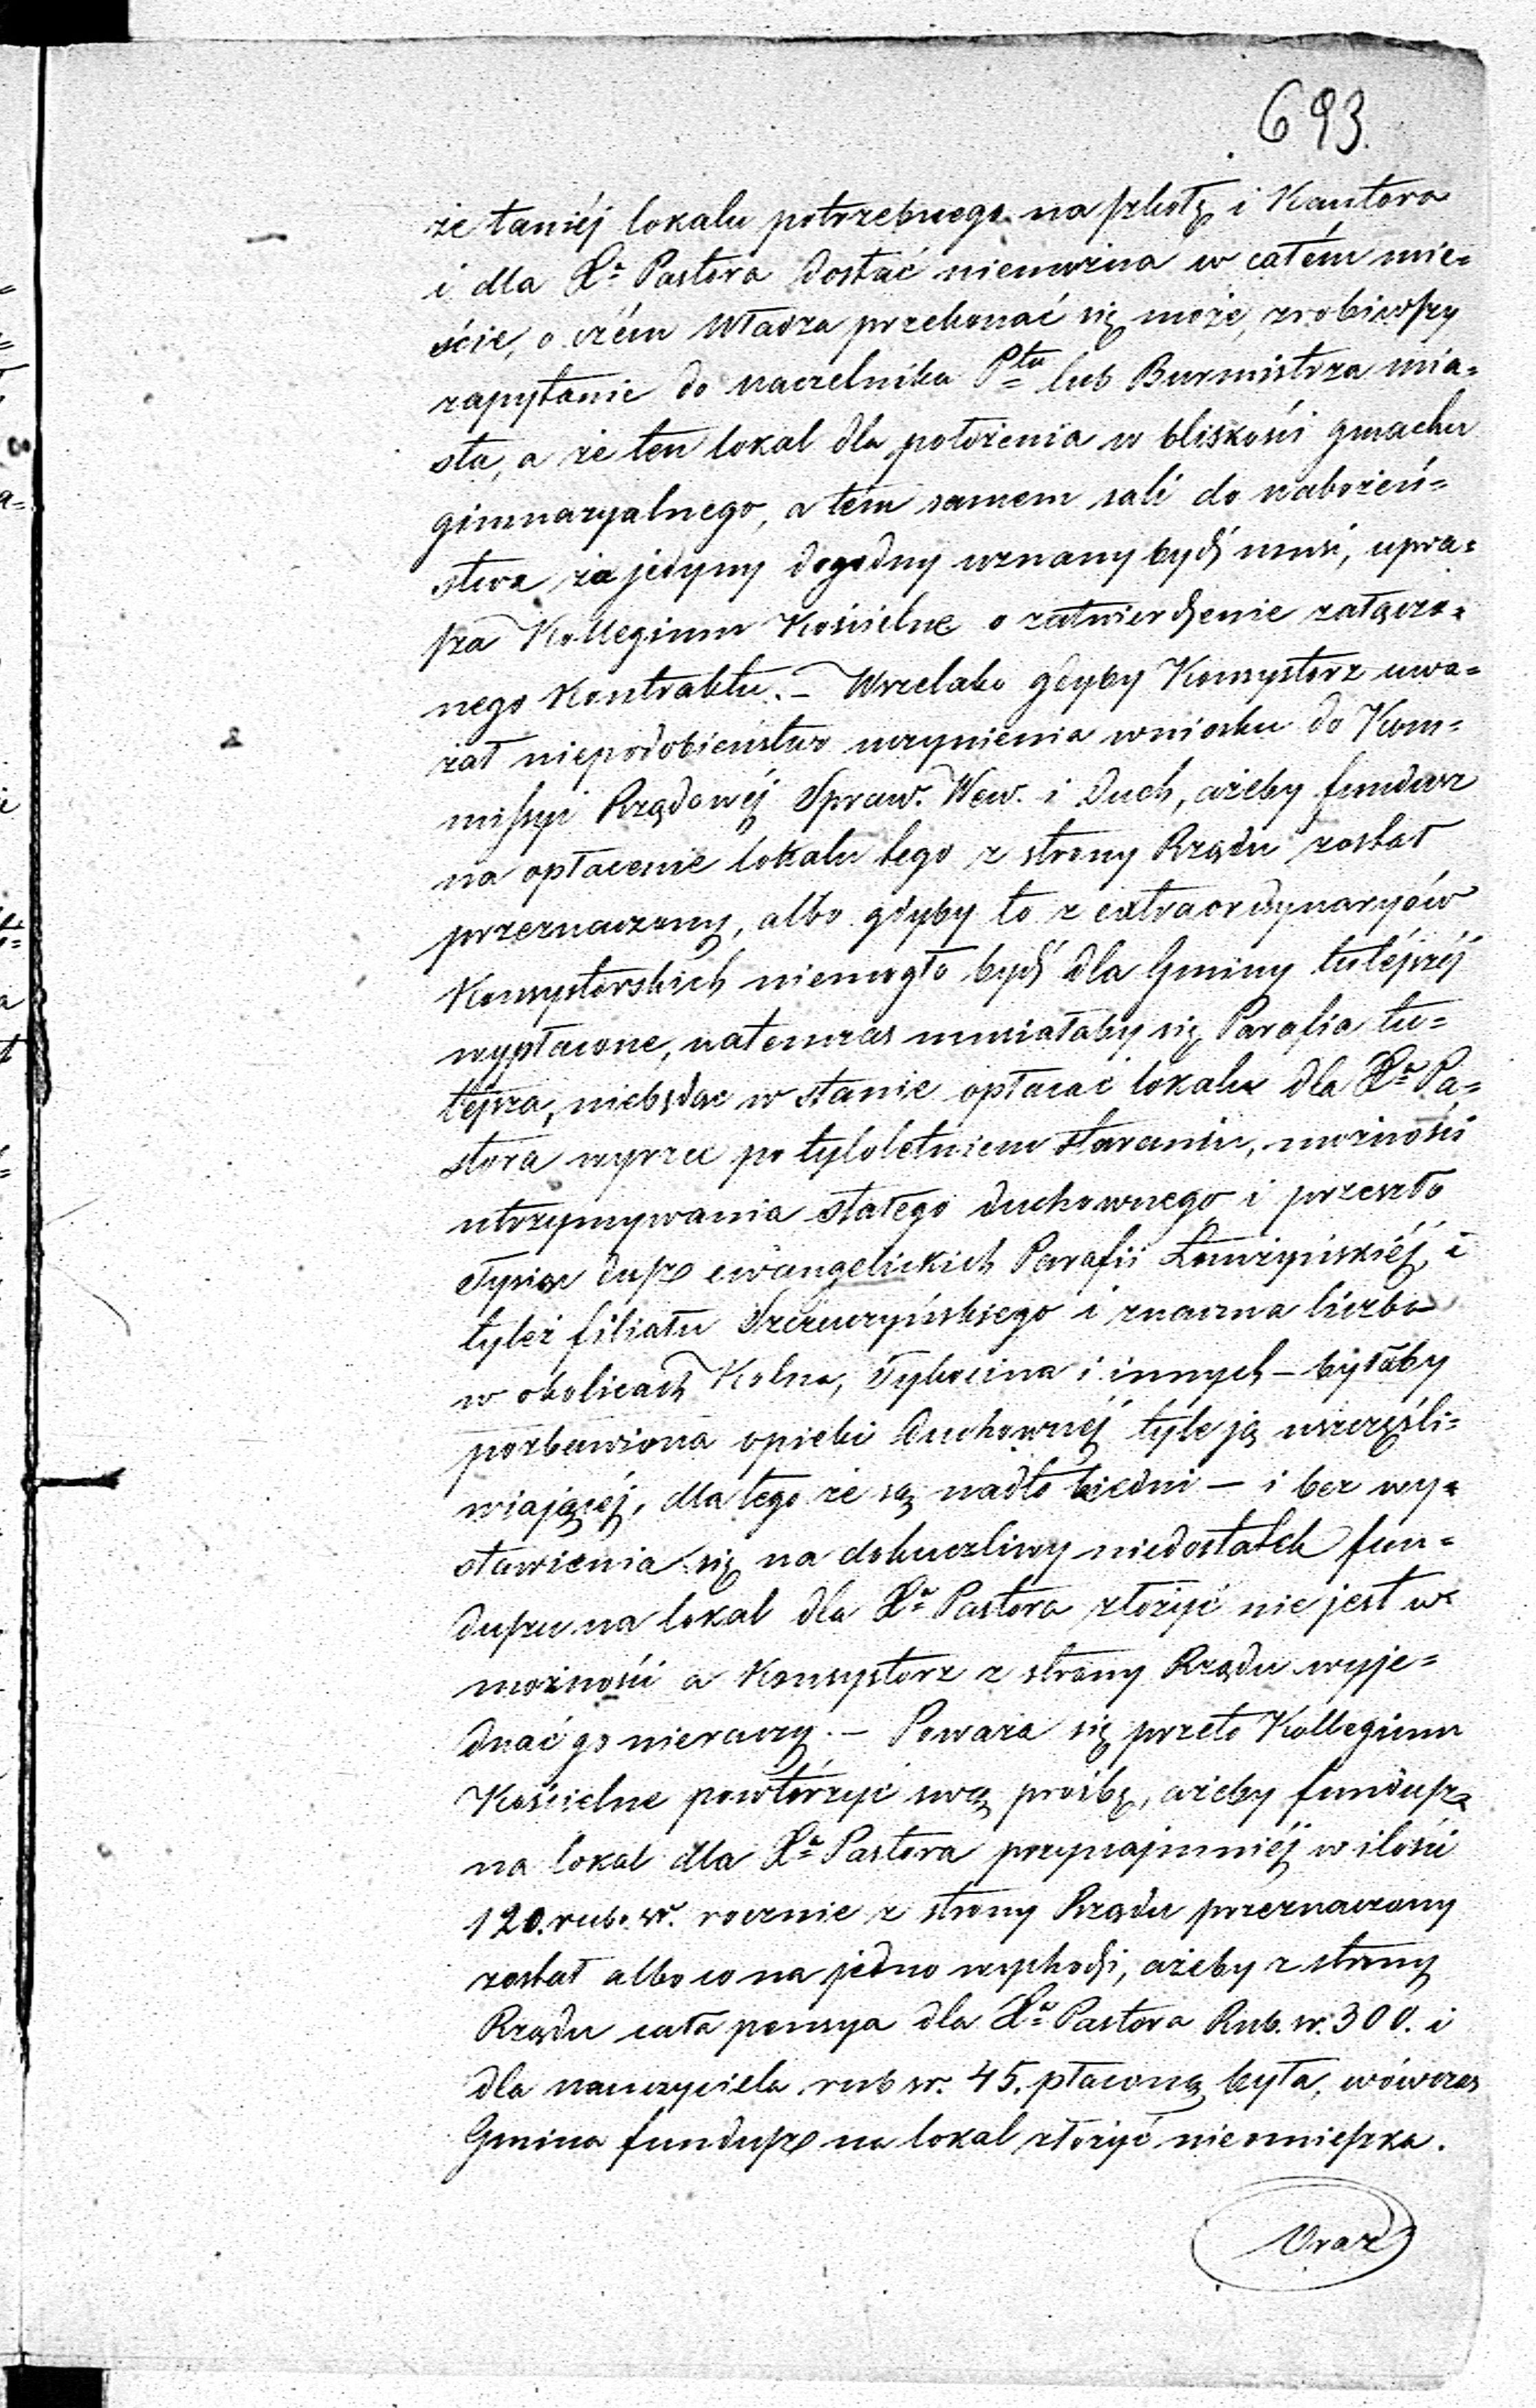 693.
że taniéj lokalu potrzebnego na szkołę i Kantora
i dla Xa Pastora dostać niemożna w całém mie=
ście, o czém Władza przekonać się może, zrobiwszy
zapytanie do naczelnika Ptu lub Burmistrza mia=
sta, a że ten lokal dla położenia w bliskości gmachu
gimnazyalnego, a tém samem sali do nabożeń=
stwa za jedyny dogodny uznany bydź musi, upra=
sza Kollegium Kościelne o zatwierdzenie załączo=
nego Kontraktu. – Wszelako gdyby Konsystorz uwa=
żał niepodobieństwo uczynienia wniosku do Kom=
missyi Rządowéj Spraw. Wew. i Duch, ażeby fundusz
na opłacenie lokalu tego z strony Rządu został
przeznaczony, albo gdyby to z extraordynaryów
Konsystorskich niemogło bydź dla Gminy tutéjszéj
wypłacone, natenczas musiałaby się Parafia tu=
téjsza, niebędąc w stanie opłacać lokalu dla Xa Pa=
stora wyrzec po tyloletniem staraniu, możności
utrzymywania stałego duchownego i przeszło
Tysiąc dusz ewangelickich Parafii Łomżyńskiéj, i
tyleż filiału Szczuczyńskiego i znaczna liczba
w okolicach Kolna, Tykocina i innych – byłaby
pozbawiona opieki Duchownéj tyle ją uszczęśli=
wiającéj, dla tego że są nadto biedni – i bez wy=
stawienia się na dokuczliwy niedostatek fun=
duszu na lokal dla Xa Pastora złożyć nie jest w
możności a Konsystorz z strony Rządu wyje=
dnać go nieraczy. – Poważa się przeto Kollegium
Kościelne powtórzyć swą prośbę, ażeby fundusz
na lokal dla Xa Pastora przynajmniéj w ilości
120. rub. sr. rocznie z strony Rządu przeznaczony
został albo co na jedno wychodzi, ażeby z strony
Rządu cała pensya dla Xa Pastora Rub. sr. 300. i
dla nauczyciela rub sr. 45. płaconą była, wówczas
Gmina fundusz na lokal złożyć nieomieszka.
Oraz